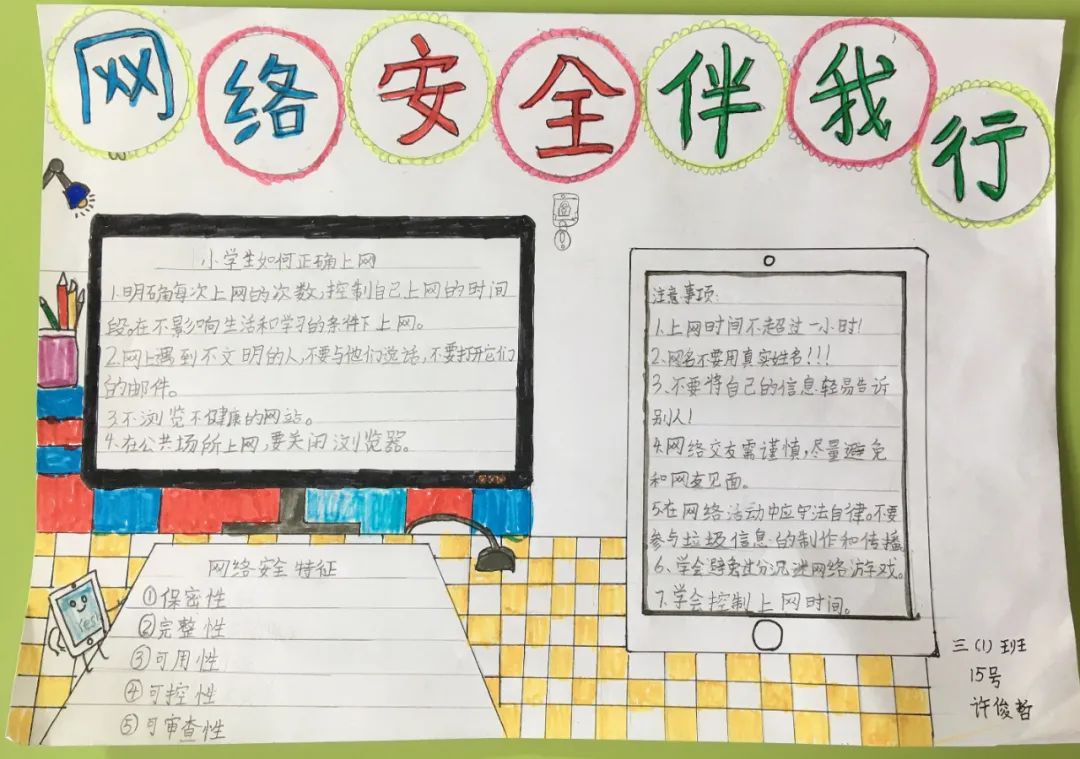 网络安全伴我行
小学生如何正确上网
1.明确每次上网的次数,控制自己上网的时间
段。在不影响生活和学习的条件下上网。
2.网上遇到不文明的人,不要与他们说话,不要打开它们
的邮件。
3.不浏览不健康的网站。
4.在公共场所上网,要关闭浏览器。
注意事项:
1.上网时间不超过一小时!
2.网名不要用真实姓名!!!
3.不要将自己的信息轻易告诉
别人!
4.网络交友需谨慎,尽量避免
和网友见面。
5.在网络活动中应守法自律。不要
参与垃圾信息的制作和传播
6、学会避免过分沉迷网络游戏。
7.学会控制上网时间。
网络安全特征
①保密性
②完整性
③可用性
④可控性
⑤可审查性
Yes!
三(1)班
15号
许俊哲